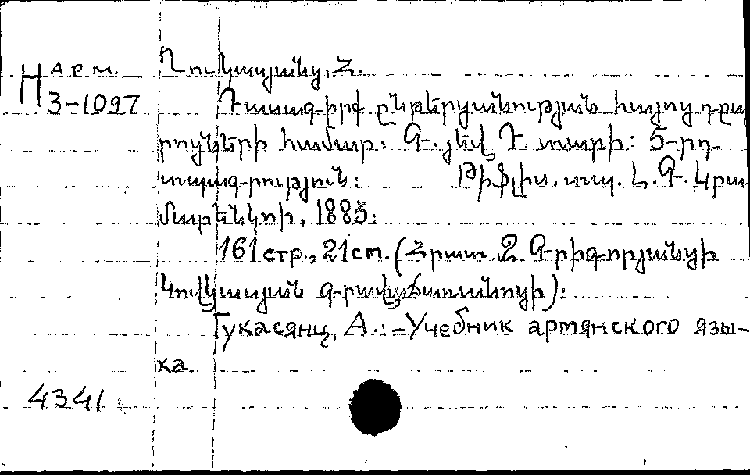 Арм.
Н
3-1097
Ղուկասյանց, Հ.
Դասագիրք ընթերցանության հայոց դպրոցների համար: Գ. և Դ տարի: 5-րդ
տպագրություն: Թիֆլիս, տպ. Հ. Գ.
մարենկոյի, 1885:
161 стр., 21 см. (Հրատ Զ Գրիգորյանցի
Կովկասյան գրավաճառանոցի):
Гукасянц, А.: – Учебник армянского язы-
ка
4341